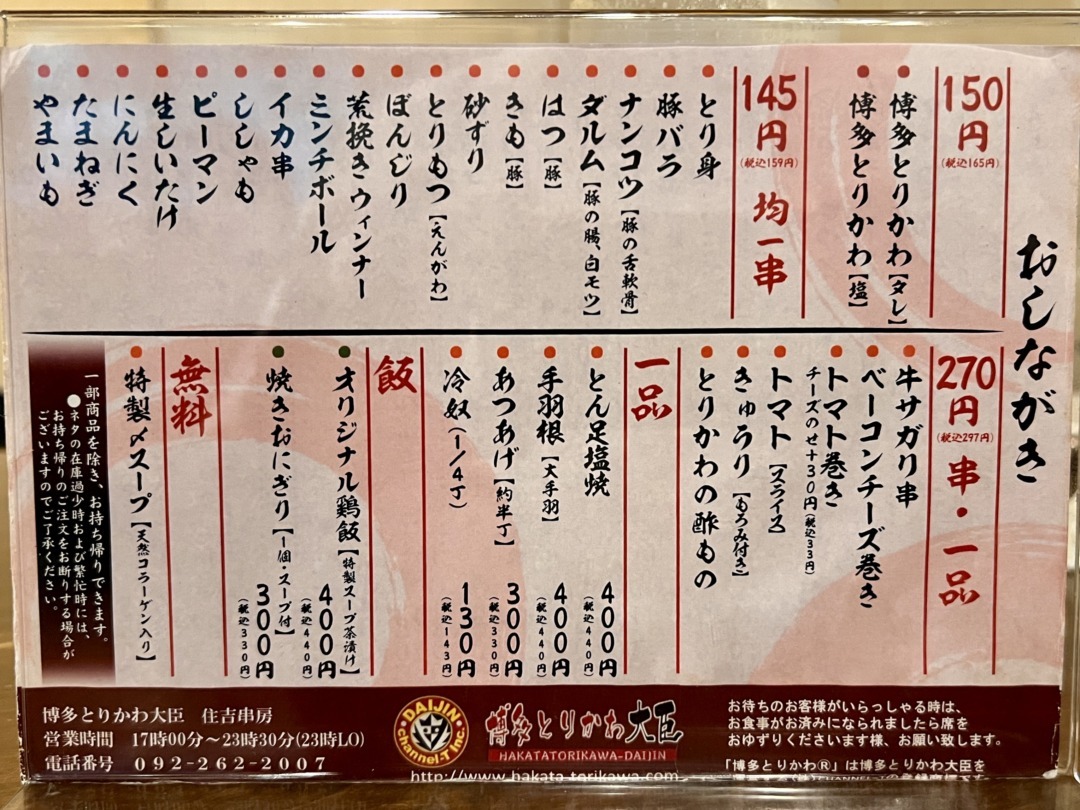 おしながき
150円
(税込165円)
博多とりかわ【タレ】
博多とりかわ【塩】
145円
(税込159円)
均一串
とり身
豚バラ
ナンコツ【豚の舌軟骨】
ダルム【豚の腸、白モツ】
はつ【豚】
きも【豚】
砂ずり
とりもつ【えんがわ】
ぼんじり
荒挽きウィンナー
ミンチボール
イカ串
ししゃも
ピーマン
生しいたけ
にんにく
たまねぎ
やまいも
270円
(税込297円)
串・一品
牛サガリ串
ベーコンチーズ巻き
トマト巻き
チーズのせ+30円(税込33円)
トマト【スライス】
きゅうり【もろみ付き】
とりかわの酢もの
一品
とん足塩焼 400円
(税込440円)
手羽根【大手羽】 400円
(税込440円)
あつあげ【約半丁】 300円
(税込330円)
冷奴(1/4丁) 130円
(税込143円)
飯
オリジナル鶏飯【特製スープ茶漬け】 400円
(税込440円)
焼きおにぎり(1個・スープ付) 300円
(税込330円)
無料
特製〆スープ【天然コラーゲン入り】
一部商品を除き、お持ち帰りできます。
●ネタの在庫過少時および繁忙時には、
お持ち帰りのご注文をお断りする場合が
ございますのでご了承ください。
博多とりかわ大臣 住吉串房
営業時間 17時00分〜23時30分(23時LO)
電話番号 092-262-2007
DAIJIN
channel-T Inc.
博多とりかわ大臣
HAKATATORIKAWA-DAIJIN
http://www.hakata-torikawa.com
お待ちのお客様がいらっしゃる時は、
お食事がお済みになられましたら席を
おゆずりくださいます様、お願い致します。
「博多とりかわ®」は博多とりかわ大臣を